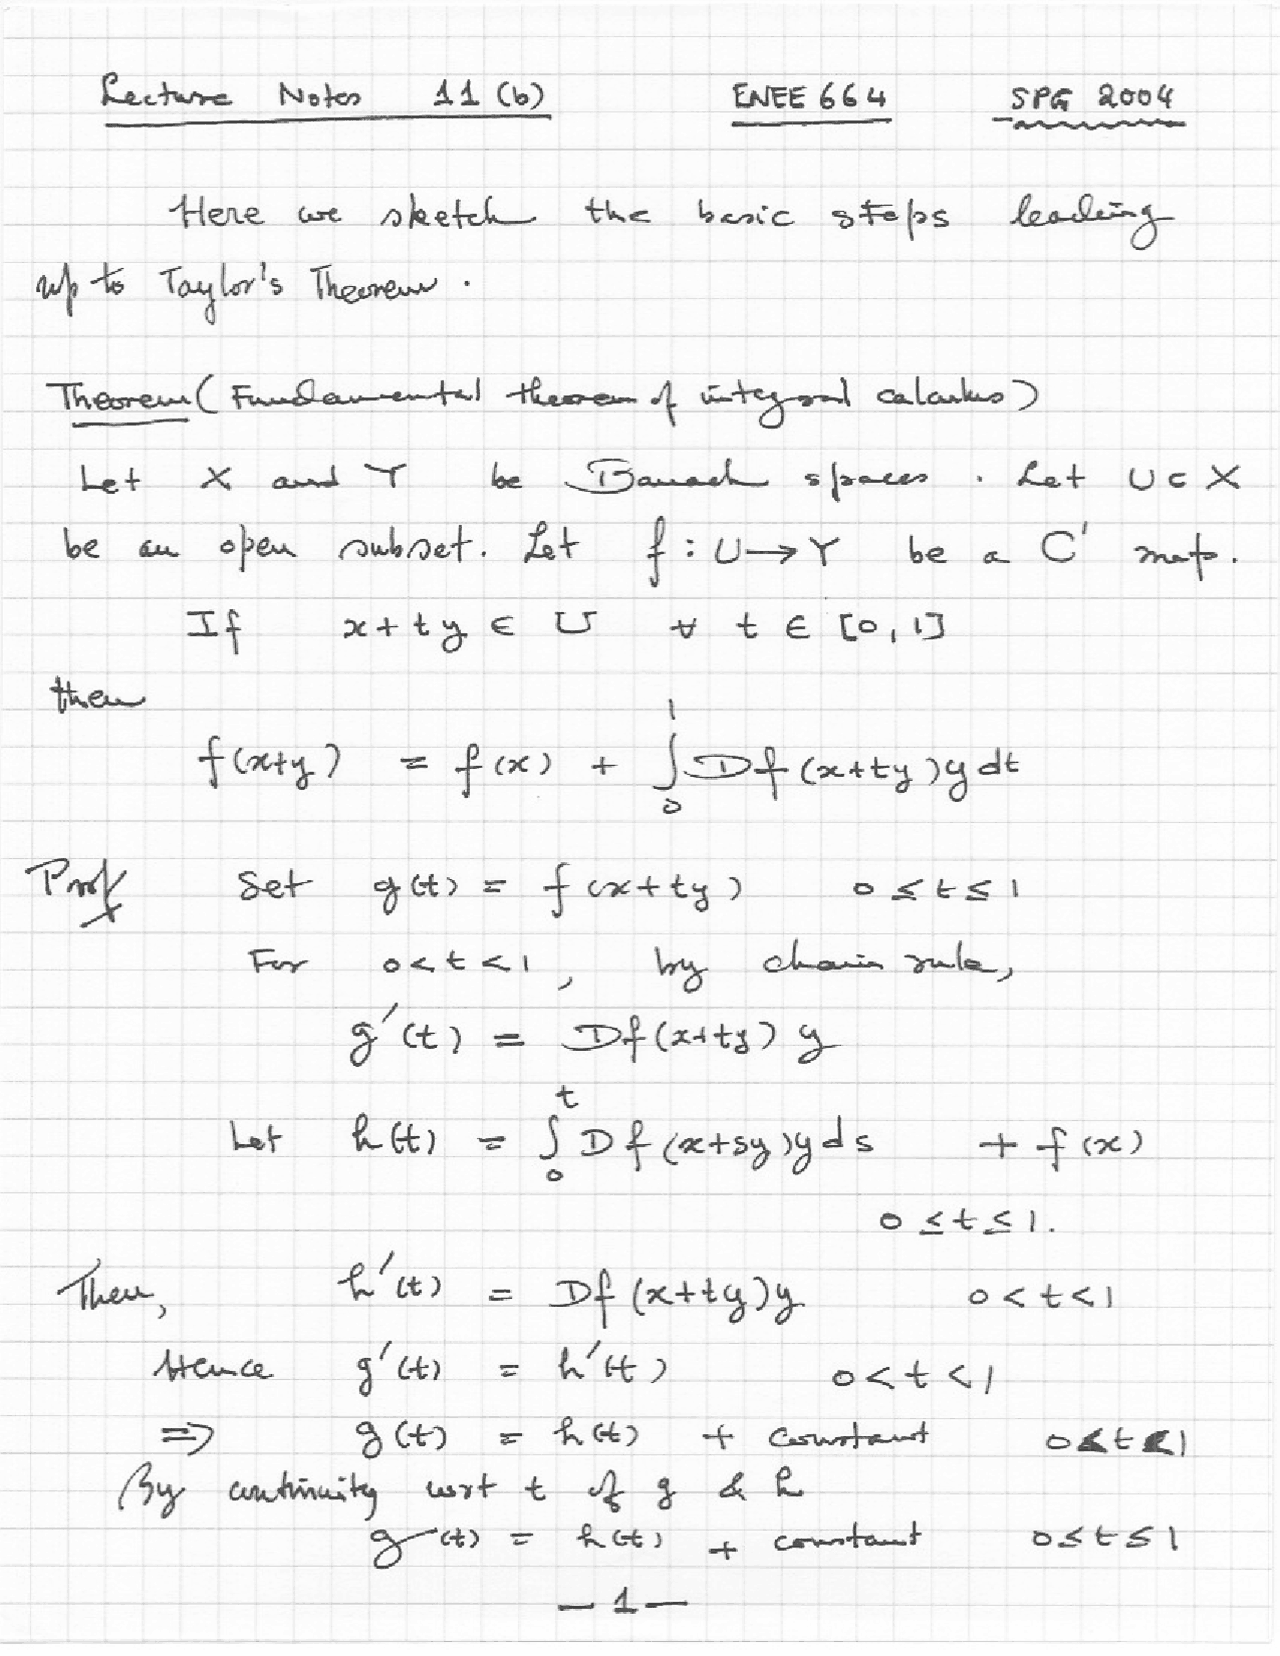 Lecture Notes 11 (b) ENEE 664 SPG 2004
Here we sketch the basic steps leading
up to Taylor's Theorem.
Theorem (Fundamental theorem of integral calculus)
Let X and Y be Banach spaces. Let U ⊂ X
be an open subset. Let f : U → Y be a C' map.
If x + ty ∈ U ∀ t ∈ [0, 1]
then
f(x+y) = f(x) + ∫₀¹ Df(x+ty)y dt
Proof Set g(t) = f(x+ty) 0 ≤ t ≤ 1
For 0 < t < 1, by chain rule,
g'(t) = Df(x+ty) y
Let h(t) = ∫₀ᵗ Df(x+sy)y ds + f(x)
0 ≤ t ≤ 1.
Then, h'(t) = Df(x+ty)y 0 < t < 1
Hence g'(t) = h'(t) 0 < t < 1
⇒ g(t) = h(t) + constant 0 < t < 1
By continuity wrt t of g & h
g(t) = h(t) + constant 0 ≤ t ≤ 1
— 1 —